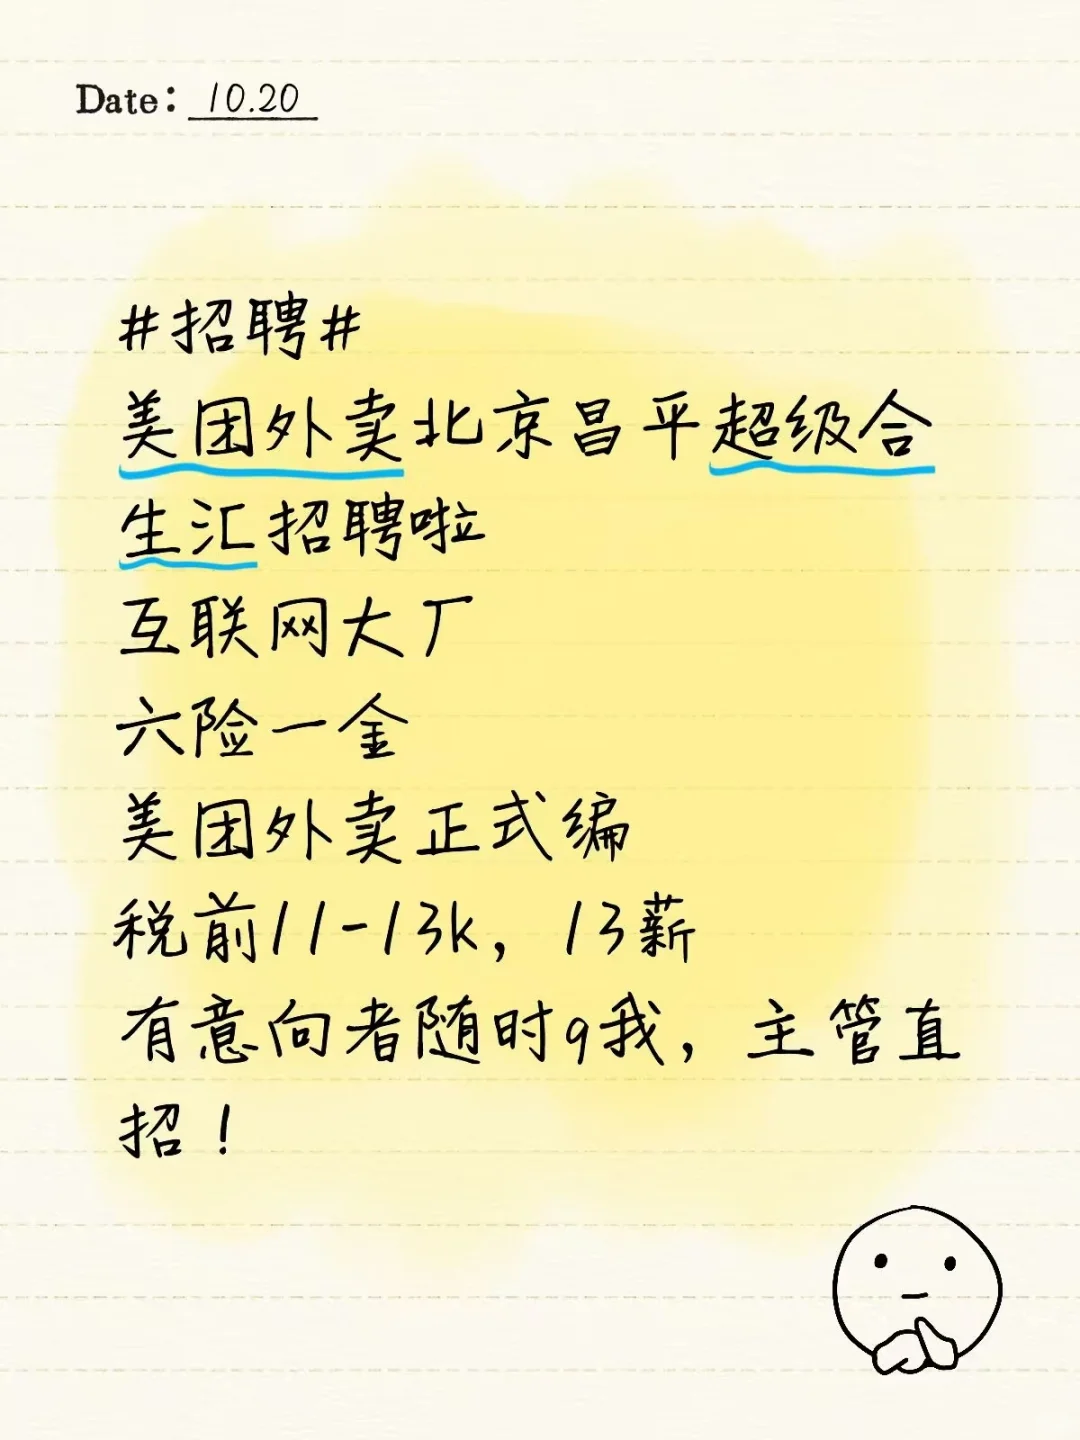 Date: 10.20
#招聘#
美团外卖北京昌平超级合
生汇招聘啦
互联网大厂
六险一金
美团外卖正式编
税前11-13k，13薪
有意向者随时q我，主管直
招！